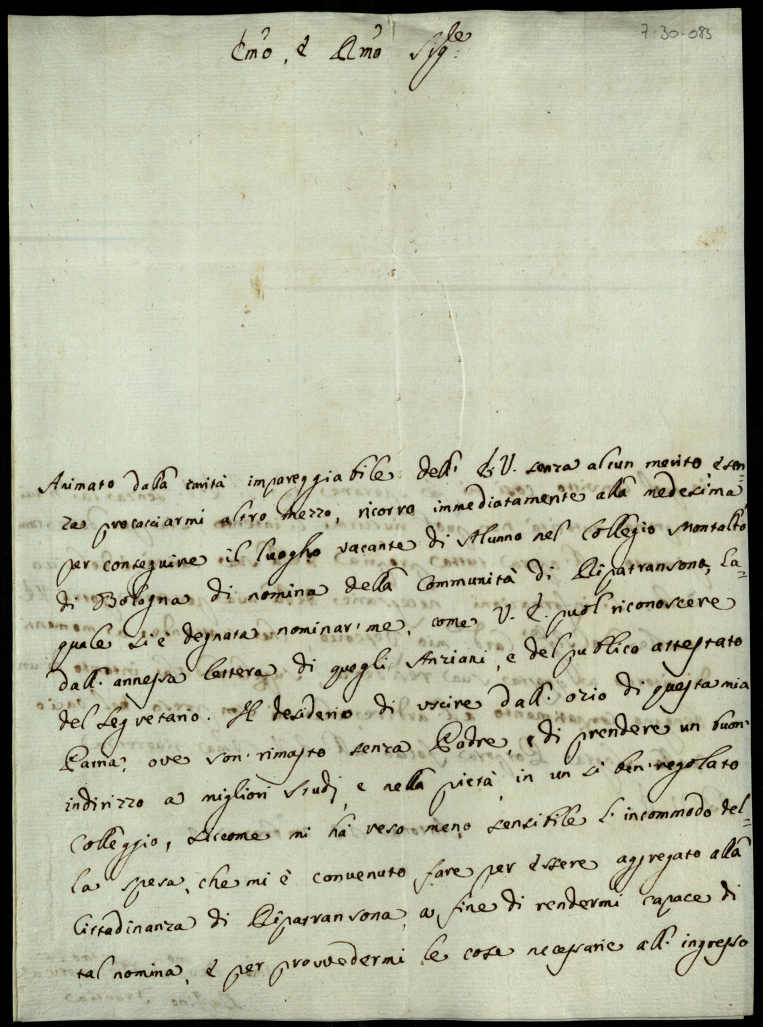 7-30-083
Emo, e Rmo Sigle:
Animato dalla carità impareggiabile dell' E. V. senza alcun merito, e sen=
za procacciarmi altro mezzo, ricorro immediatamente alla medesima,
per conseguire il luogho vacante di Alunno nel Collegio Montalto
di Bologna di nomina della Communità di Ripatransona, La=
quale si è degnata nominar'me, come V. E. puol riconoscere
dall' annessa lettera di quegli Anziani, e del publico attestato
del Segretario. Il desiderio di uscire dall' ozio di questa mia
Patria, ove son' rimasto senza Padre, e di prendere un buon'
indirizzo a migliori Studj, e nella pietà, in un sì ben' regolato
Colleggio, siccome mi hà reso meno sensibile l' incommodo del=
la spesa, che mi è convenuto fare per essere aggregato alla
Cittadinanza di Ripatransona, a fine di rendermi capace di
tal nomina, e per provvedermi le cose necessarie all' ingresso